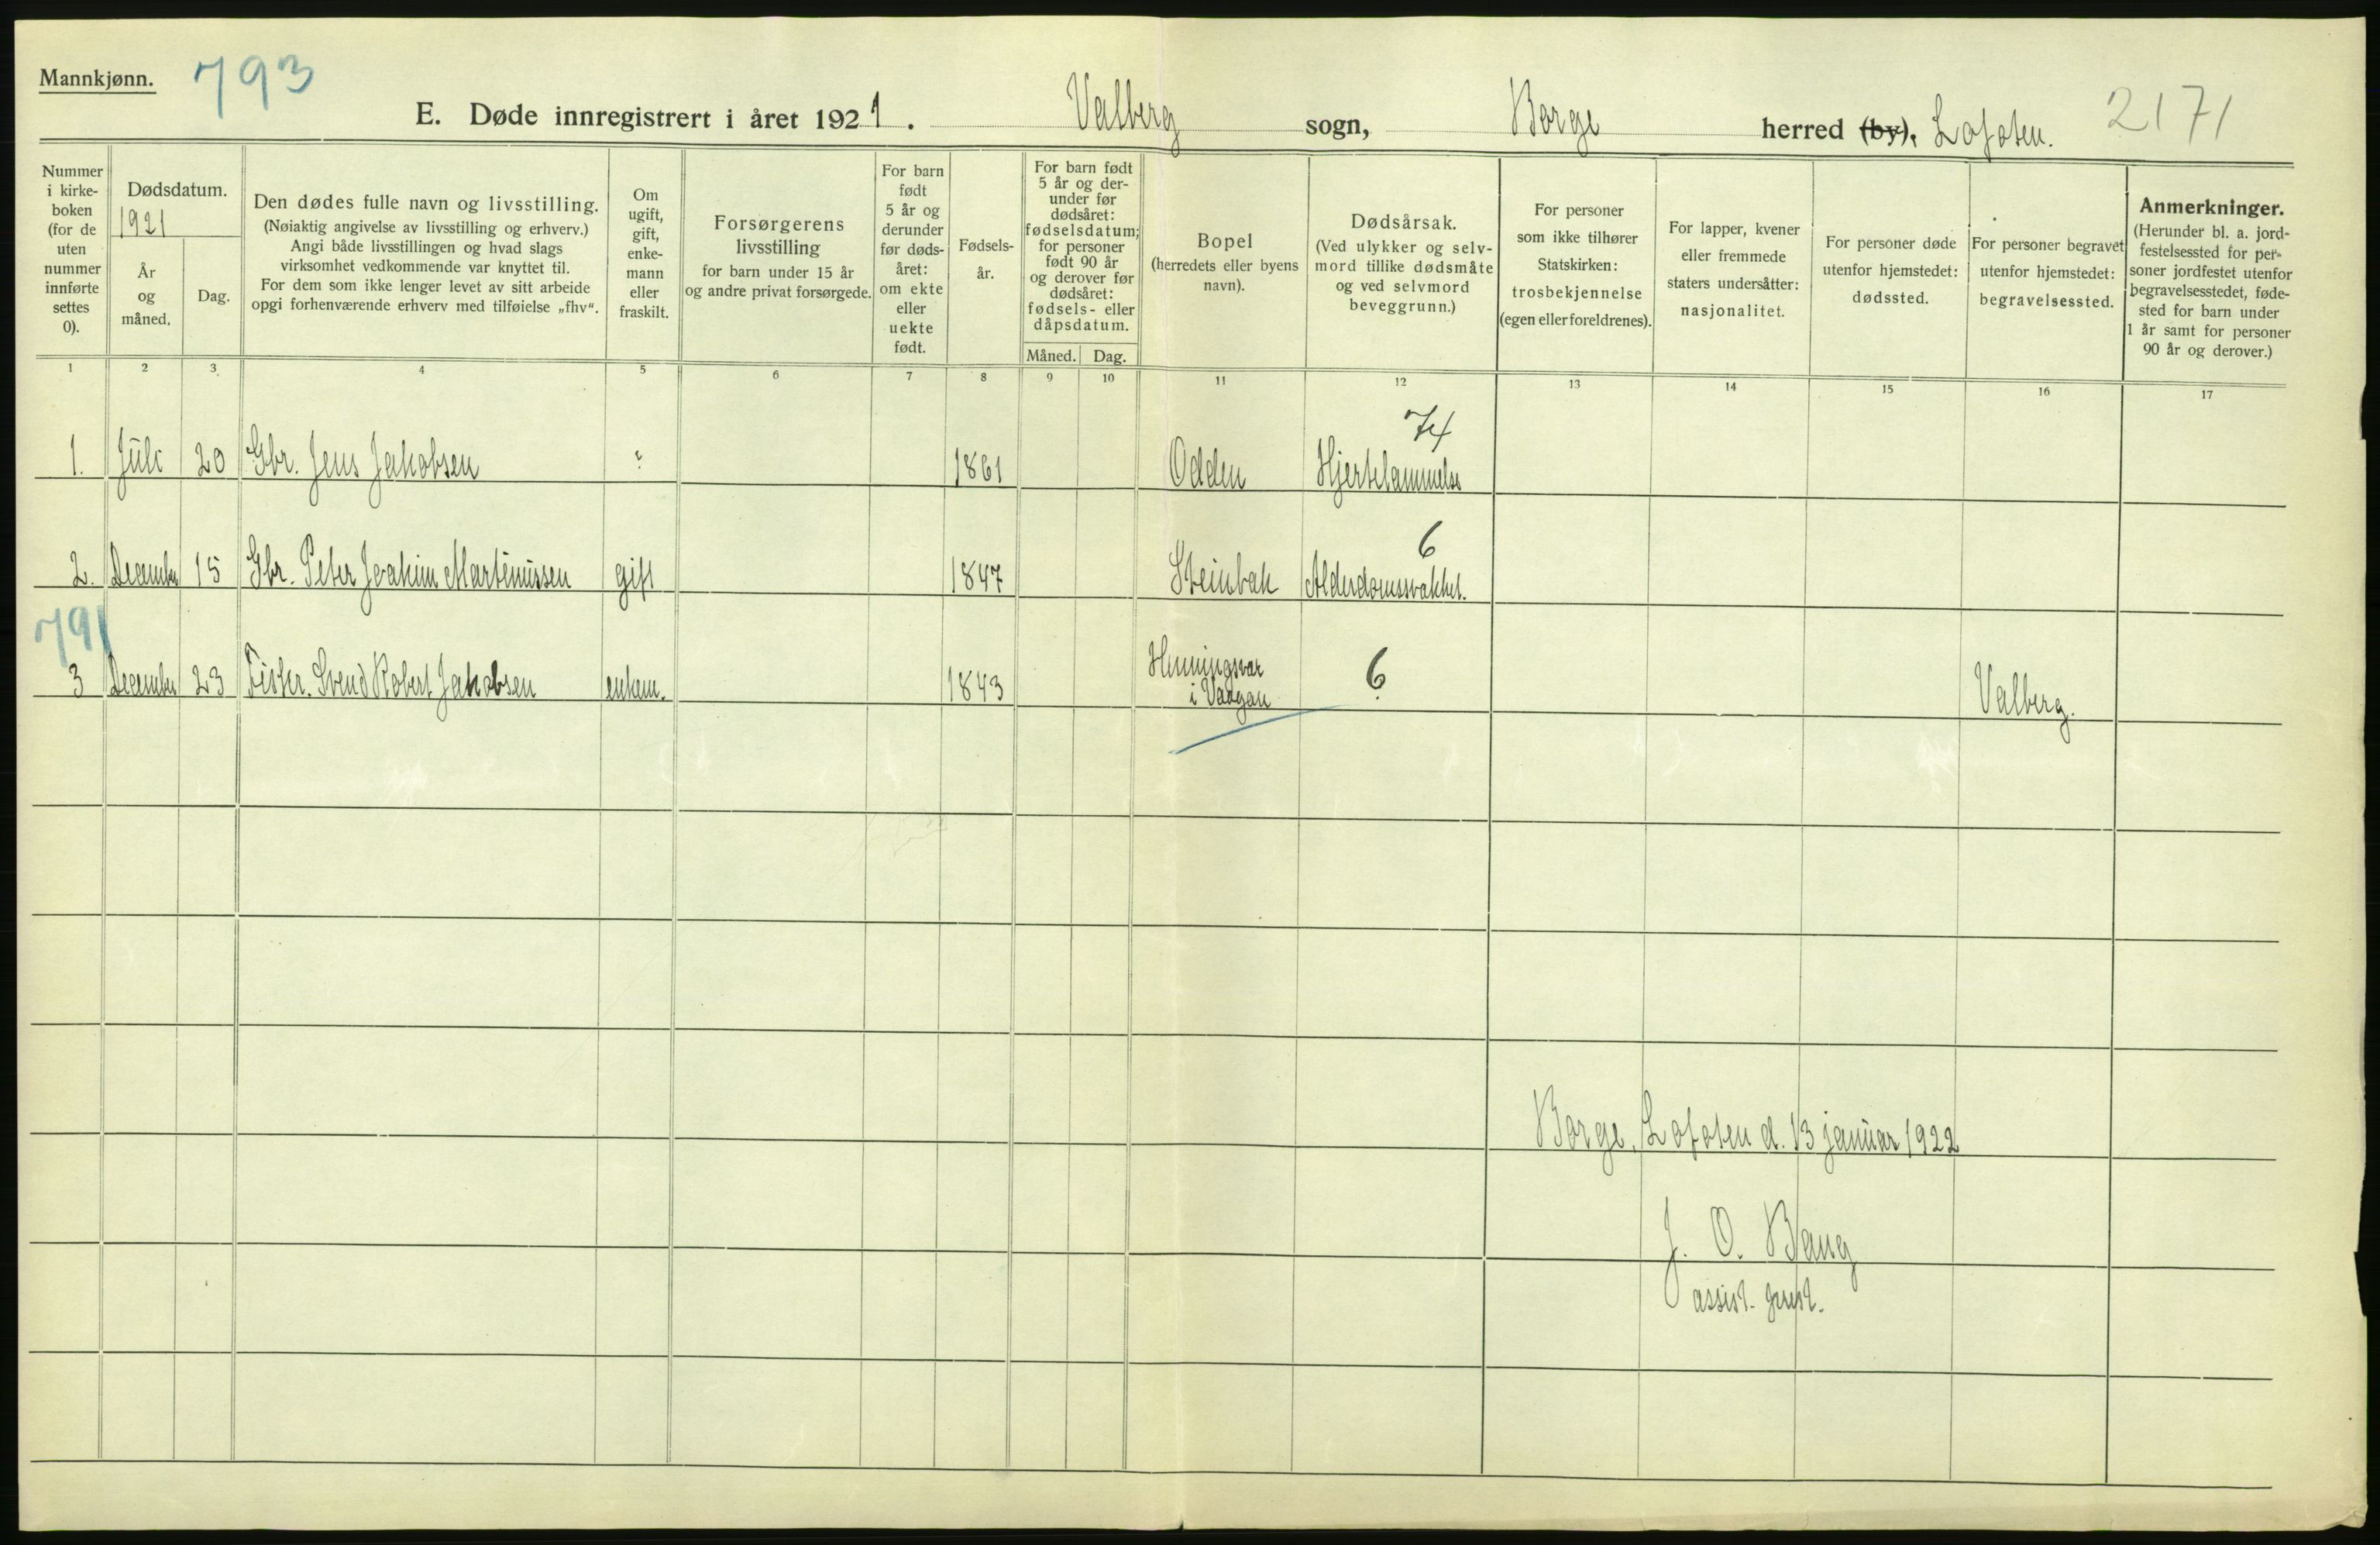 Mannkjønn. 793
E. Døde innregistrert i året 1921. Valberg sogn, Borge herred (by), Lofoten. 2171
Nummer
i kirke-
boken
(for de
uten
nummer
innførte
settes
0).
Dødsdatum.
1921
År
og
måned.
Dag.
Den dødes fulle navn og livsstilling.
(Nøiaktig angivelse av livsstilling og erhverv.)
Angi både livsstillingen og hvad slags
virksomhet vedkommende var knyttet til.
For dem som ikke lenger levet av sitt arbeide
opgi forhenværende erhverv med tilføielse „fhv“.
Om
ugift,
gift,
enke-
mann
eller
fraskilt.
Forsørgerens
livsstilling
for barn under 15 år
og andre privat forsørgede.
For barn
født
5 år og
derunder
før døds-
året:
om ekte
eller
uekte
født.
Fødsels-
år.
For barn født
5 år og der-
under før
dødsåret:
fødselsdatum;
for personer
født 90 år
og derover før
dødsåret:
fødsels- eller
dåpsdatum.
Måned. Dag.
Bopel
(herredets eller byens
navn).
Dødsårsak.
(Ved ulykker og selv-
mord tillike dødsmåte
og ved selvmord
beveggrunn.)
For personer
som ikke tilhører
Statskirken:
trosbekjennelse
(egen eller foreldrenes).
For lapper, kvener
eller fremmede
staters undersåtter:
nasjonalitet.
For personer døde
utenfor hjemstedet:
dødssted.
For personer begravet
utenfor hjemstedet:
begravelsessted.
Anmerkninger.
(Herunder bl. a. jord-
festelsessted for per-
soner jordfestet utenfor
begravelsesstedet, føde-
sted for barn under
1 år samt for personer
90 år og derover.)
1 2 3 4 5 6 7 8 9 10 11 12 13 14 15 16 17
74
1. Juli 20 Gbr. Jens Jakobsen ? 1861 Odden Hjertelammelse
6
2. December 15 Gbr. Peter Joakim Martinussen gift 1847 Steinbak Alderdomssvakhet.
791
3 December 23 Fisker. Svend Robert Jakobsen enkem. 1843 Henningsvær
i Vaagan 6 Valberg.
Borge, Lofoten d. 13 januar 1922
J. O. Bang
assist. prest.